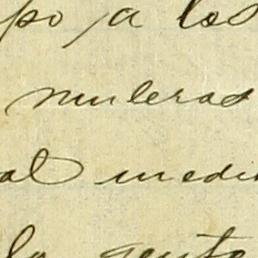 po a los
muleras
al medi
la gente